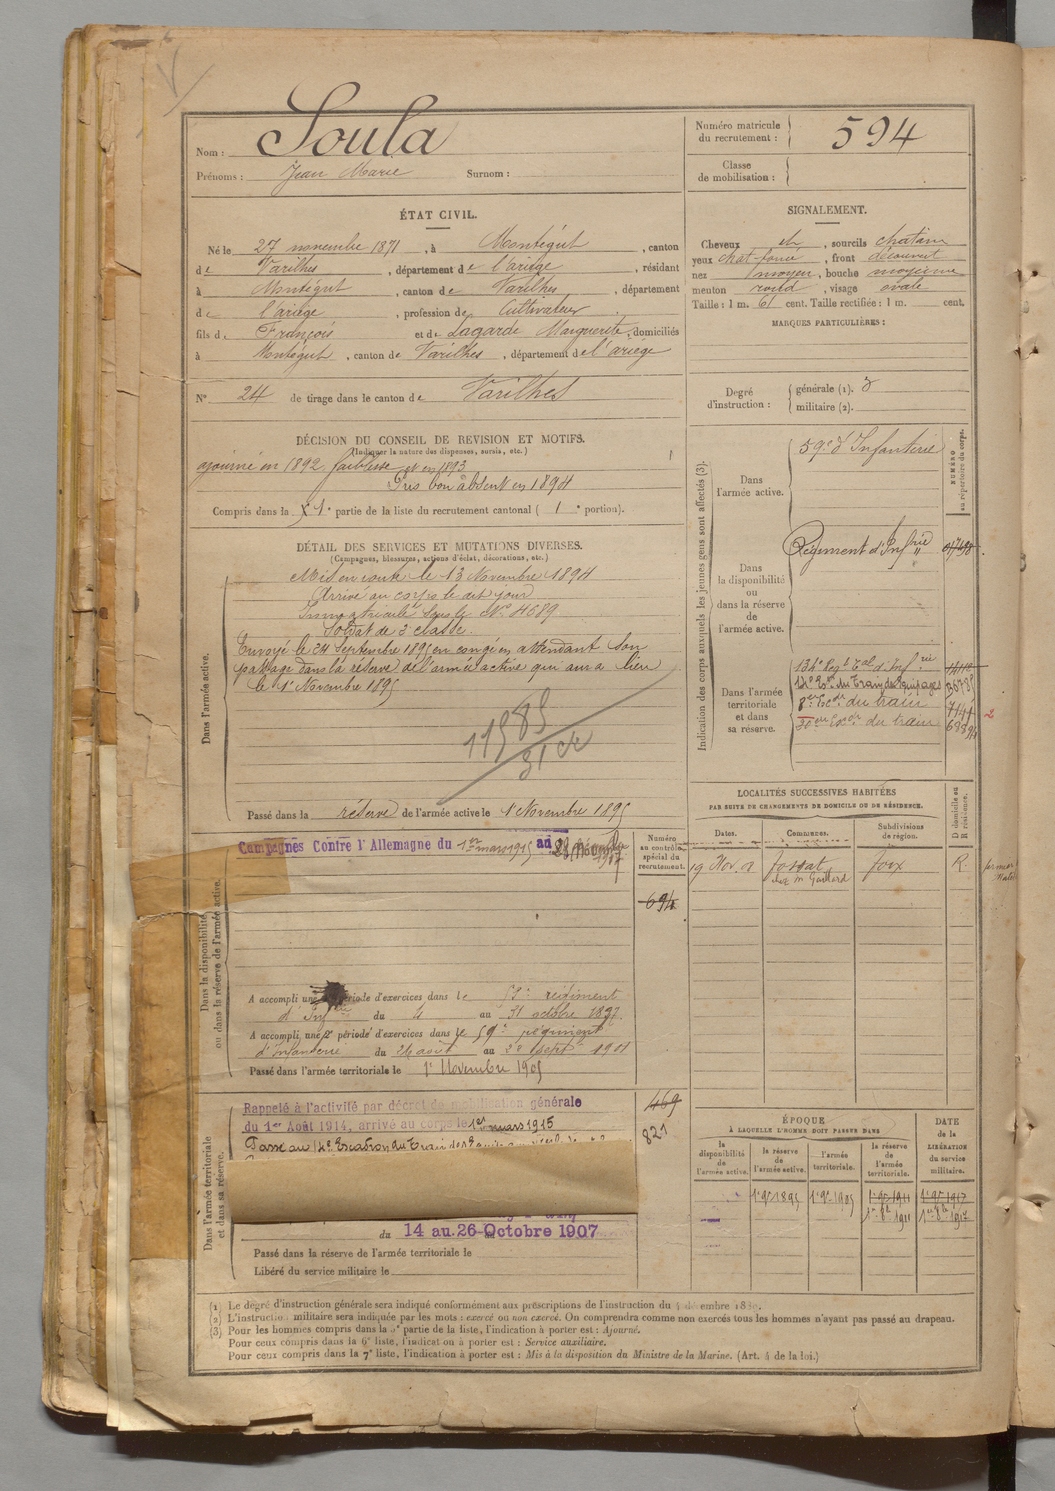 Nom : Soula
Prénoms : Jean Marie Surnom :
Numéro matricule du recrutement : 594
Classe de mobilisation :
ÉTAT CIVIL.
Né le 27 novembre 1871, à Montégut, canton
de Varilhes, département de l'ariège, résidant
à Montégut, canton de Varilhes, département
de l'ariège, profession de Cultivateur
fils de François et de Lagarde Marguerite, domiciliés
à Montégut, canton de Varilhes, département de l'ariège
N° 24 de tirage dans le canton de Varilhes
SIGNALEMENT.
Cheveux ch, sourcils chatain
yeux chat. foncé, front découvert
nez moyen, bouche moyenne
menton rond, visage ovale
Taille : 1 m. 61 cent. Taille rectifiée : 1 m. cent.
MARQUES PARTICULIÈRES :
Degré d'instruction : générale (1). 3
militaire (2).
DÉCISION DU CONSEIL DE REVISION ET MOTIFS.
(Indiquer la nature des dispenses, sursis, etc.)
ajourné en 1892 faiblesse et en 1893
Pris bon absent en 1894
Compris dans la 1e partie de la liste du recrutement cantonal ( 1e portion).
DÉTAIL DES SERVICES ET MUTATIONS DIVERSES.
(Campagnes, blessures, actions d'éclat, décorations, etc.)
Dans l'armée active.
Mis en route le 13 Novembre 1894
Arrivé au corps le dit jour
Immatriculé sous le N° 4689
Soldat de 2e classe.
Envoyé le 24 Septembre 1895 en congé en attendant son
passage dans la réserve de l'armée active qui aura lieu
le 1er Novembre 1895
Passé dans la réserve de l'armée active le 1er Novembre 1895
Dans la disponibilité ou dans la réserve de l'armée active.
Campagnes Contre l'Allemagne du 1er mars 1915 au
1917
Numéro au contrôle spécial du recrutement.
694
A accompli une période d'exercices dans le 59e régiment
d'Infrie du 4 au 31 octobre 1897
A accompli une 2e période d'exercices dans le 59e régiment
d'Infanterie du 26 août au sept 1901
Passé dans l'armée territoriale le 1er Novembre 1905
Dans l'armée territoriale et dans sa réserve.
Rappelé à l'activité par décret de mobilisation générale
du 1er Août 1914, arrivé au corps le 1er mars 1915
Passé au 14e Escadron du Train des
469
821
du 14 au 26 Octobre 1907
Passé dans la réserve de l'armée territoriale le
Libéré du service militaire le
Indication des corps auxquels les jeunes gens sont affectés (3).
NUMÉRO au répertoire du corps.
Dans l'armée active.
59e d'Infanterie
Dans la disponibilité ou dans la réserve de l'armée active.
Régiment d'Infrie
Dans l'armée territoriale et dans sa réserve.
134e Regt Tal d'Infrie
14e Eson du Train des Equipages
8e Ecdr du train
20e Escdr du train
LOCALITÉS SUCCESSIVES HABITÉES
PAR SUITE DE CHANGEMENTS DE DOMICILE OU DE RÉSIDENCE.
Dates. Communes. Subdivisions de région. D domicile ou R résidence.
19 Nov. fossat foix R
chez Mr Gaillard
ÉPOQUE
À LAQUELLE L'HOMME DOIT PASSER DANS
la disponibilité de l'armée active. la réserve de l'armée active. l'armée territoriale. la réserve de l'armée territoriale. DATE de la LIBÉRATION du service militaire.
1er 9bre 1895 1er 9bre 1905 1er 9bre 1911 1er 9bre 1917
1er 8bre 1911 1er 8bre 1917
(1) Le degré d'instruction générale sera indiqué conformément aux prescriptions de l'instruction du 4 décembre
(2) L'instruction militaire sera indiquée par les mots : exercé ou non exercé. On comprendra comme non exercés tous les hommes n'ayant pas passé au drapeau.
(3) Pour les hommes compris dans la 5e partie de la liste, l'indication à porter est : Ajourné.
Pour ceux compris dans la 6e liste, l'indication à porter est : Service auxiliaire.
Pour ceux compris dans la 7e liste, l'indication à porter est : Mis à la disposition du Ministre de la Marine. (Art. 4 de la loi.)